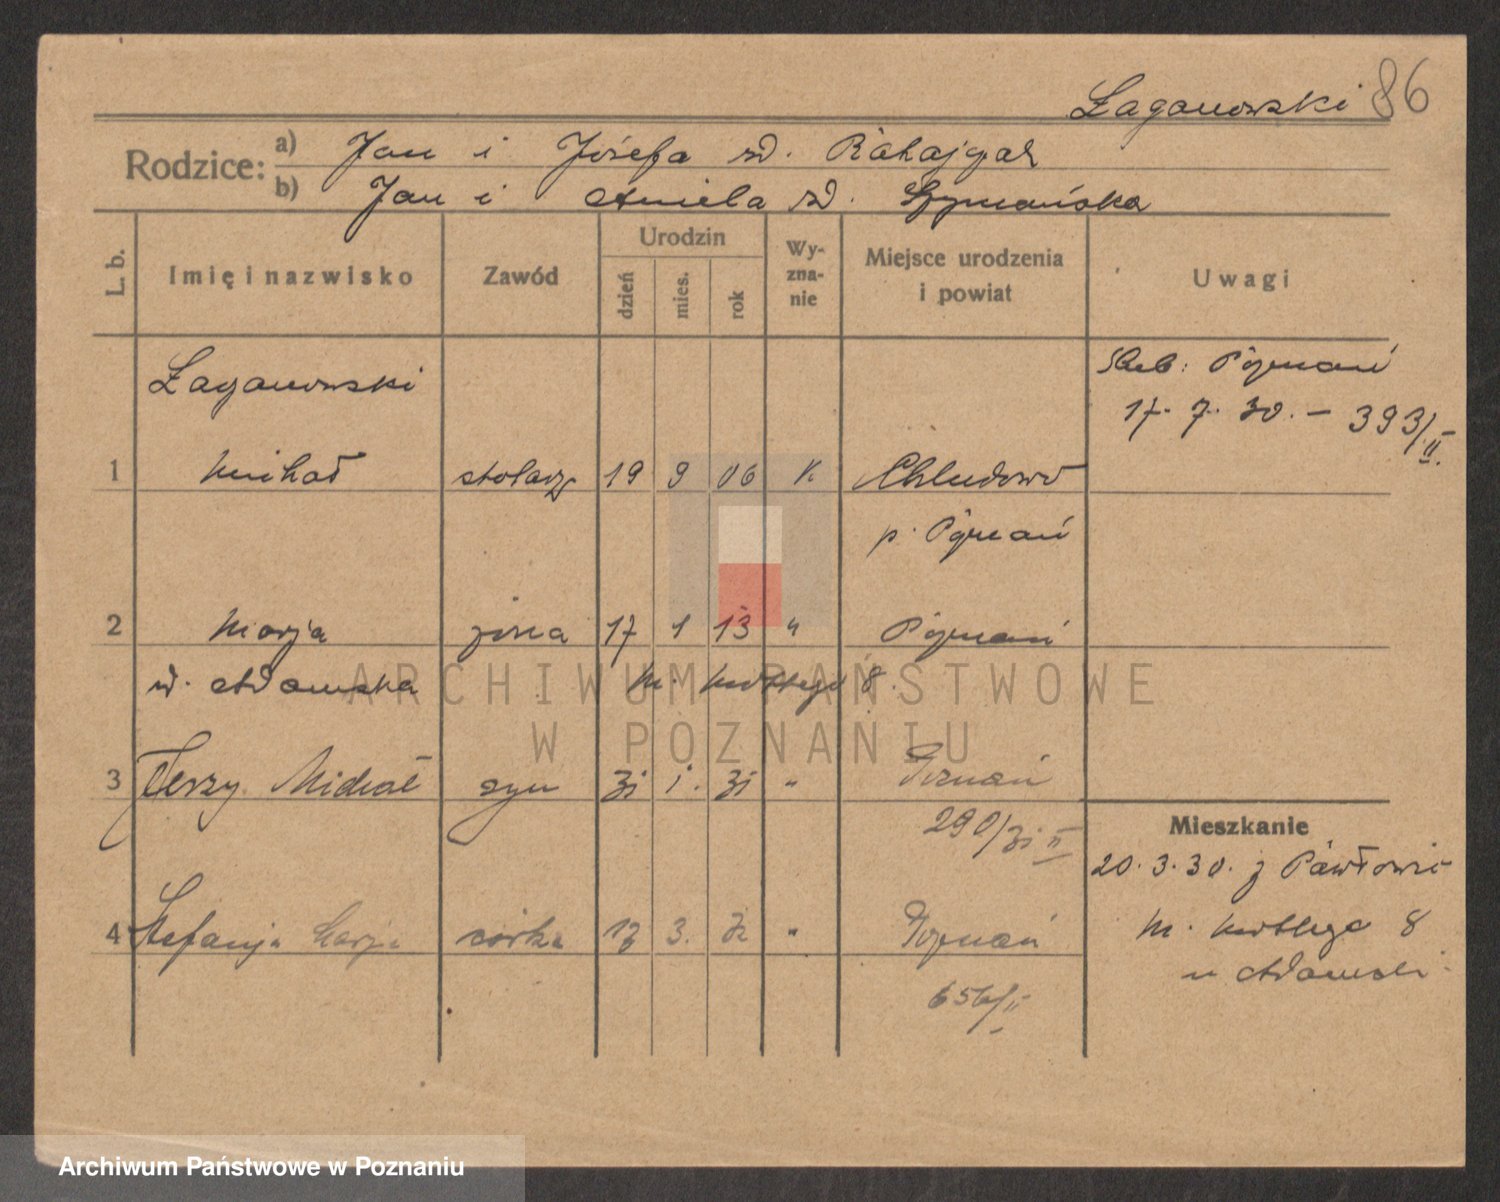 Łaganowski 86
Rodzice: a) Jan i Józefa zd. Ratajczak
b) Jan i Aniela zd. Szymańska
L. b. Imię i nazwisko Zawód Urodzin dzień mies. rok Wyzna-nie Miejsce urodzenia i powiat Uwagi
Łaganowski
Ślub: Poznań
17. 7. 30. – 393/II.
1 Michał stolarz 19 9 06 k Chludowo
p. Poznań
2 Marja żona 17 1 13 " Poznań
zd. Adamska M. 8.
3 Jerzy Michał syn 31 1. 31 " Poznań
290/31 II
Mieszkanie
20. 3. 30. z Pawłowic
M. 8
u Adamski
4 Stefanja Marja córka 13 3. " Poznań
656/II
ARCHIWUM PAŃSTWOWE
W POZNANIU
Archiwum Państwowe w Poznaniu